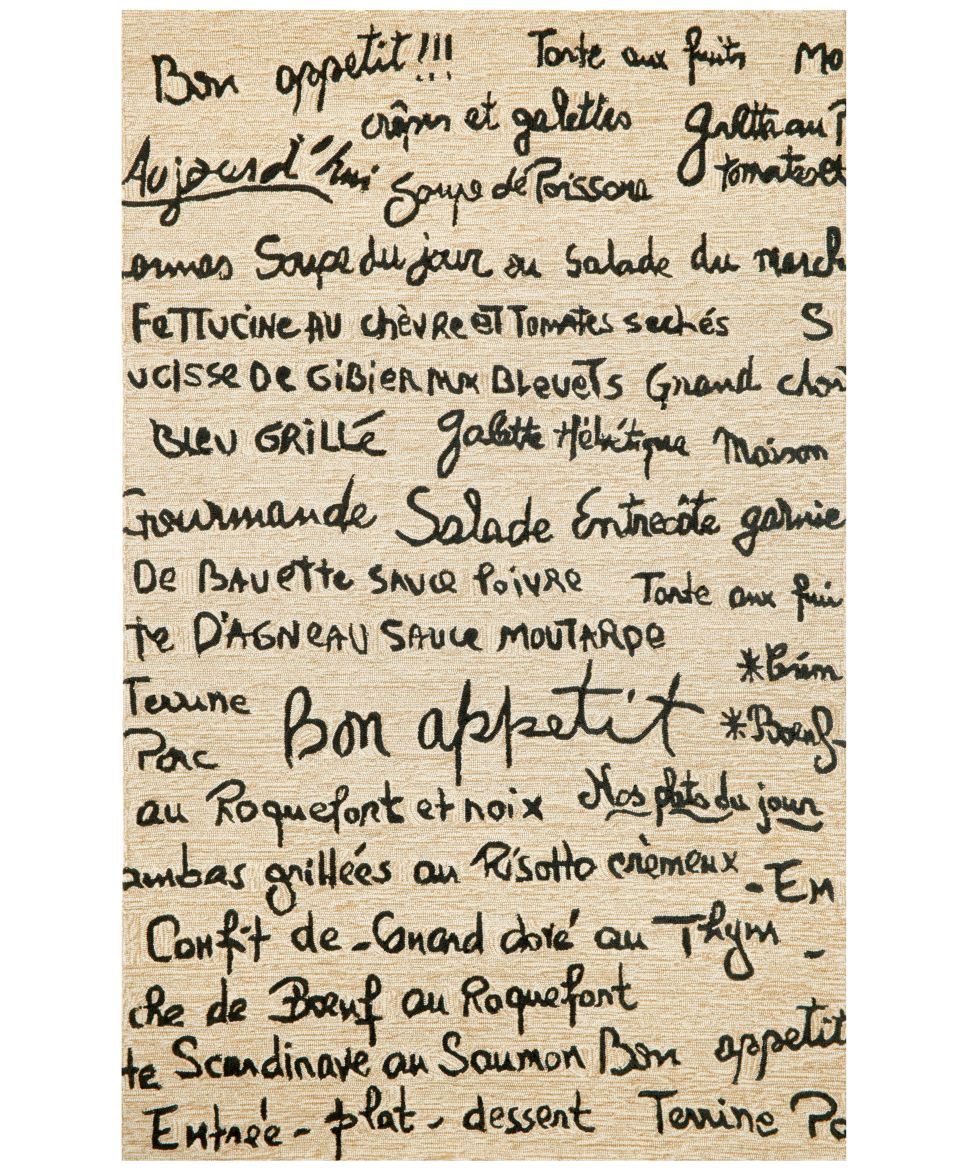 Bon appetit!!! Tarte aux fruits Mo
crêpes et galettes galette au P
Aujourd'hui Soupe de Poissons tomates et
ormes Soupe du jour ou Salade du march
FETTUCINE AU chèvre et Tomates sechés S
UCISSE DE GIBIER AUX BLEUETS Grand choi
BLEU GRILLÉ galette Hélvétique Maison
Gourmande Salade Entrecôte garnie
De BAVETTE SAUCE POIVRE Tarte aux frui
te D'AGNEAU SAUCE MOUTARDE
Terrine Bon appetit *Boeuf
Porc
au Roquefort et noix Nos plats du jour
ambas grillées au Risotto crèmeux -EN
Confit de-Canard doré au Thym -
che de Boeuf au Roquefort
te Scandinave au Saumon Bon appetit
Entrée - plat - dessent Terrine Po